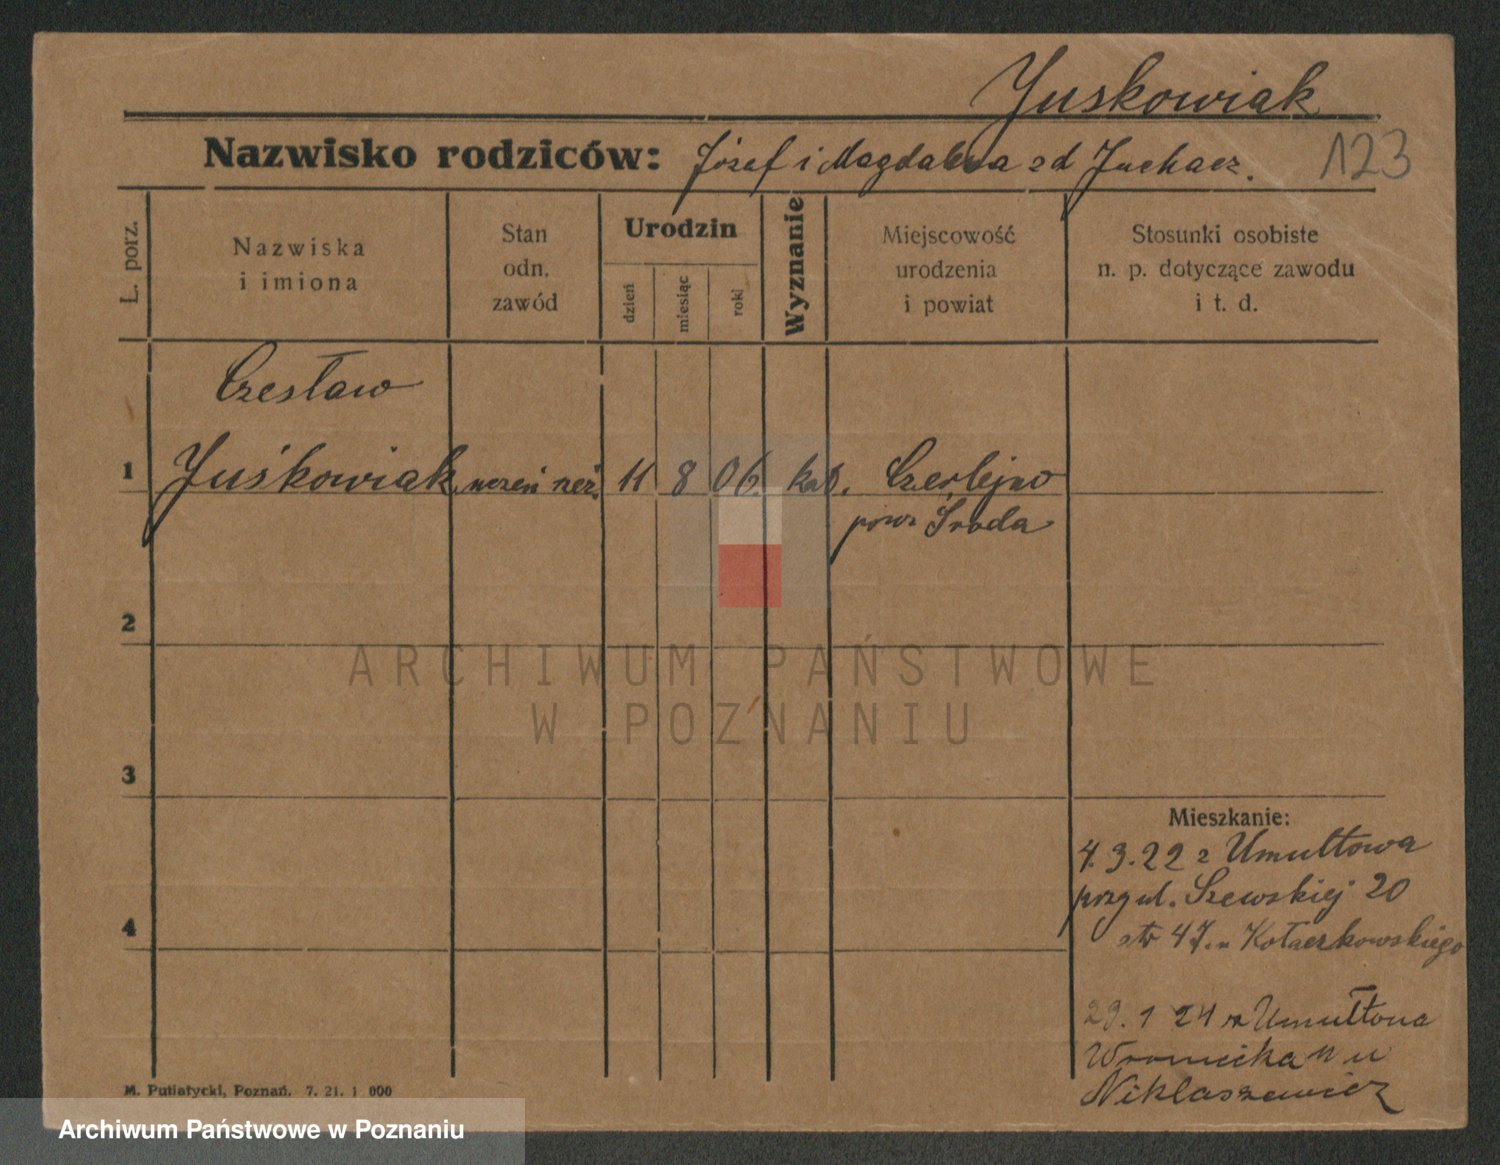 Juskowiak
Nazwisko rodziców: Józef i Magdalena zd Juchacz.
123
L. porz.
Nazwiska
i imiona
Stan
odn.
zawód
Urodzin
dzień
miesiąc
rok
Wyznanie
Miejscowość
urodzenia
i powiat
Stosunki osobiste
n. p. dotyczące zawodu
i t. d.
Czesław
1 Juśkowiak uczeń rzeź. 11 8 06. kat. Czerlejno
pow Środa
2
ARCHIWUM PAŃSTWOWE
W POZNANIU
3
Mieszkanie:
4.3.22 z Umultowa
przy ul. Szewskiej 20
4
str 47. u Kołaczkowskiego
29.1 24 z Umułtowa
Wroniecka 11 u
Niklaszewicz
M. Putiatycki, Poznań. 7. 21. 1 000
Archiwum Państwowe w Poznaniu